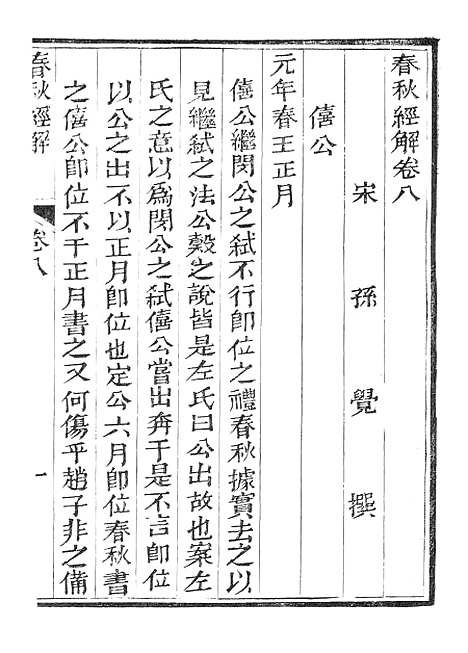 春秋經解卷八
宋孫覺撰
僖公
元年春王正月
僖公繼閔公之弒不行卽位之禮春秋據實去之以
見繼弒之法公穀之說皆是左氏曰公出故也案左
氏之意以爲閔公之弒僖公嘗出奔于是不言卽位
以公之出不以正月卽位也定公六月卽位春秋書
之僖公卽位不于正月書之又何傷乎趙子非之備
春秋經解
卷八
一